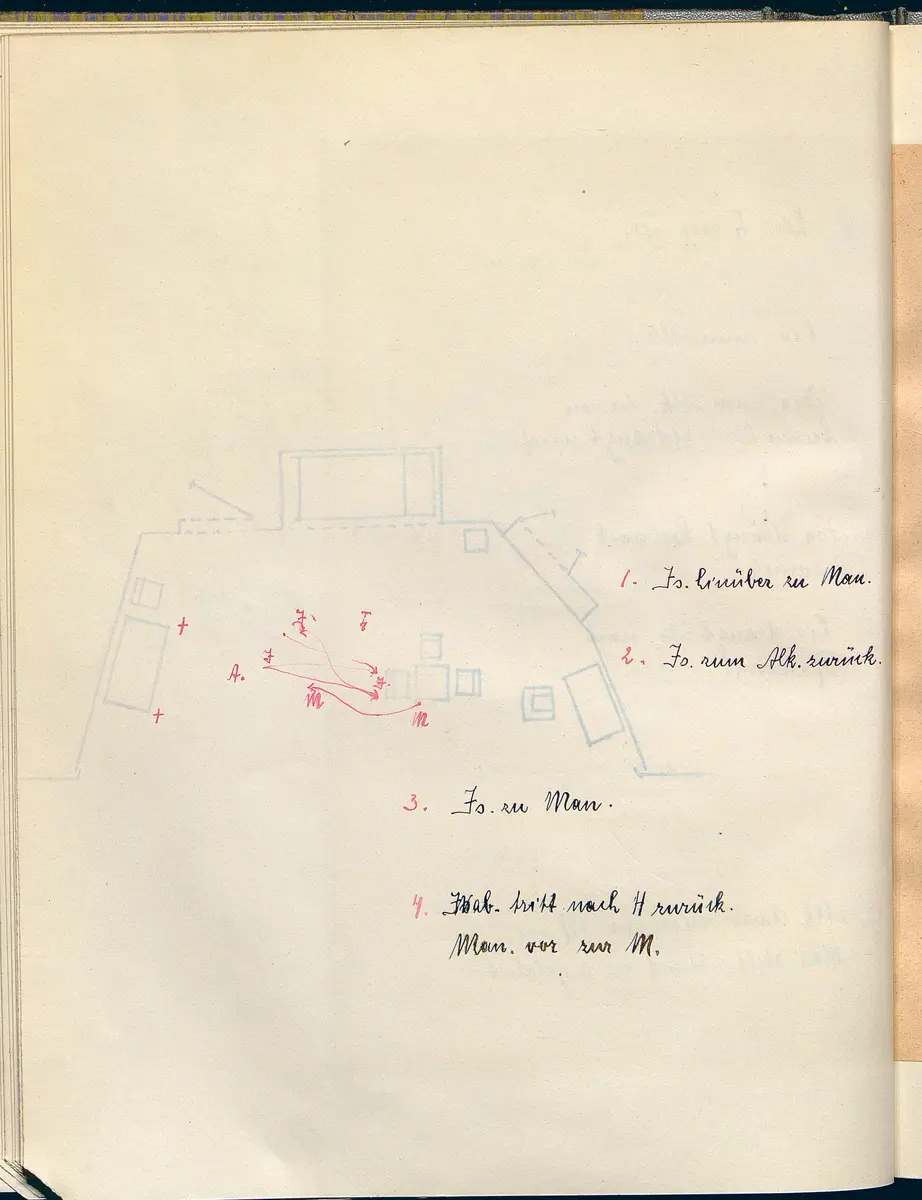 1. Is. hinüber zu Man.
2. Is. zum Alk. zurück.
J.
F
J
A.
M
M
3. Is. zu Man.
4. Isab. tritt nach H zurück.
Man. vor zur M.